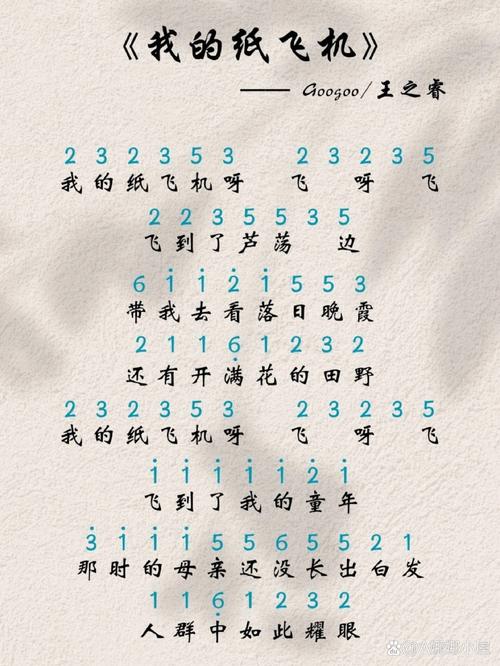 《我的纸飞机》
—— Googoo/王之睿
2 3 2 3 5 3 2 3 2 3 5
我的纸飞机呀 飞 呀 飞
2 2 3 5 5 3 5
飞到了芦荡 边
6 i̇ i̇ 2̇ i̇ 5 5 3
带我去看落日晚霞
2 1 1 6̣ 1 2 3 2
还有开满花的田野
2 3 2 3 5 3 2 3 2 3 5
我的纸飞机呀 飞 呀 飞
1̇ 1̇ 1̇ 1̇ 1̇ 1̇ 2̇ 1̇
飞到了我的童年
3̇ 1̇ 1̇ 1̇ 5 5 6 5 5 2 1
那时的母亲还没长出白发
1 1 6̣ 1 2 3 2
人群中如此耀眼